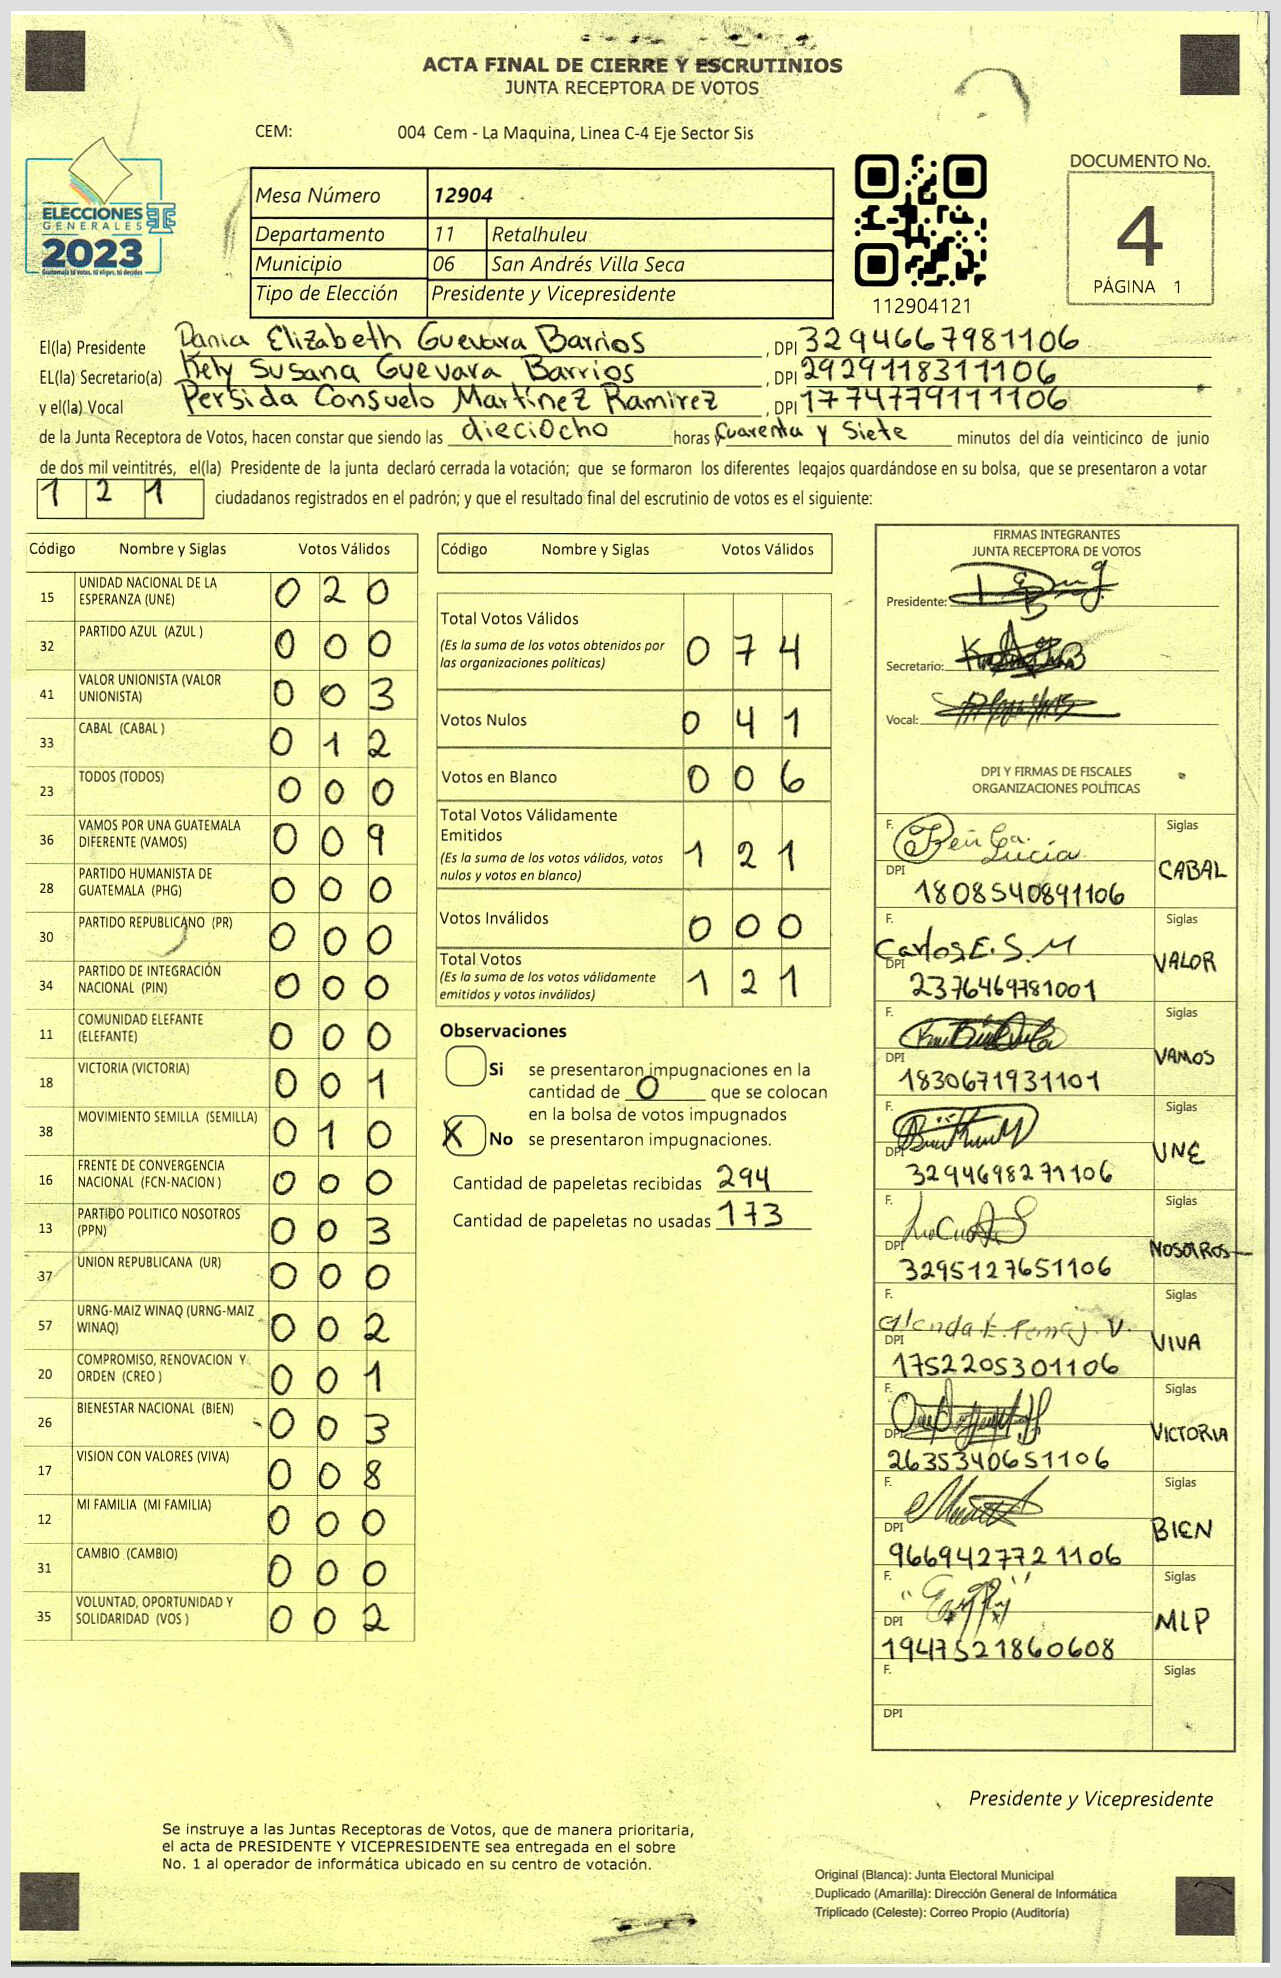 ACTA FINAL DE CIERRE Y ESCRUTINIOS
JUNTA RECEPTORA DE VOTOS
CEM: 004 Cem - La Maquina, Linea C-4 Eje Sector Sis
ELECCIONES
GENERALES
2023
Guatemala tú votas, tú eliges, tú decides
Mesa Número 12904
Departamento 11 Retalhuleu
Municipio 06 San Andrés Villa Seca
Tipo de Elección Presidente y Vicepresidente
112904121
DOCUMENTO No.
4
PÁGINA 1
El(la) Presidente Dania Elizabeth Guevara Barrios , DPI 3294667981106
EL(la) Secretario(a) Kely Susana Guevara Barrios , DPI 2929118311106
y el(la) Vocal Persida Consuelo Martínez Ramirez , DPI 1774779111106
de la Junta Receptora de Votos, hacen constar que siendo las dieciocho horas Cuarenta y Siete minutos del día veinticinco de junio
de dos mil veintitrés, el(la) Presidente de la junta declaró cerrada la votación; que se formaron los diferentes legajos guardándose en su bolsa, que se presentaron a votar
1 2 1 ciudadanos registrados en el padrón; y que el resultado final del escrutinio de votos es el siguiente:
Código Nombre y Siglas Votos Válidos
15 UNIDAD NACIONAL DE LA ESPERANZA (UNE) 0 2 0
32 PARTIDO AZUL (AZUL ) 0 0 0
41 VALOR UNIONISTA (VALOR UNIONISTA) 0 0 3
33 CABAL (CABAL ) 0 1 2
23 TODOS (TODOS) 0 0 0
36 VAMOS POR UNA GUATEMALA DIFERENTE (VAMOS) 0 0 9
28 PARTIDO HUMANISTA DE GUATEMALA (PHG) 0 0 0
30 PARTIDO REPUBLICANO (PR) 0 0 0
34 PARTIDO DE INTEGRACIÓN NACIONAL (PIN) 0 0 0
11 COMUNIDAD ELEFANTE (ELEFANTE) 0 0 0
18 VICTORIA (VICTORIA) 0 0 1
38 MOVIMIENTO SEMILLA (SEMILLA) 0 1 0
16 FRENTE DE CONVERGENCIA NACIONAL (FCN-NACION ) 0 0 0
13 PARTIDO POLITICO NOSOTROS (PPN) 0 0 3
37 UNION REPUBLICANA (UR) 0 0 0
57 URNG-MAIZ WINAQ (URNG-MAIZ WINAQ) 0 0 2
20 COMPROMISO, RENOVACION Y ORDEN (CREO ) 0 0 1
26 BIENESTAR NACIONAL (BIEN) 0 0 3
17 VISION CON VALORES (VIVA) 0 0 8
12 MI FAMILIA (MI FAMILIA) 0 0 0
31 CAMBIO (CAMBIO) 0 0 0
35 VOLUNTAD, OPORTUNIDAD Y SOLIDARIDAD (VOS ) 0 0 2
Código Nombre y Siglas Votos Válidos
Total Votos Válidos
(Es la suma de los votos obtenidos por las organizaciones políticas) 0 7 4
Votos Nulos 0 4 1
Votos en Blanco 0 0 6
Total Votos Válidamente Emitidos
(Es la suma de los votos válidos, votos nulos y votos en blanco) 1 2 1
Votos Inválidos 0 0 0
Total Votos
(Es la suma de los votos válidamente emitidos y votos inválidos) 1 2 1
Observaciones
Si se presentaron impugnaciones en la
cantidad de 0 que se colocan
en la bolsa de votos impugnados
X No se presentaron impugnaciones.
Cantidad de papeletas recibidas 294
Cantidad de papeletas no usadas 173
FIRMAS INTEGRANTES
JUNTA RECEPTORA DE VOTOS
Presidente:
Secretario:
Vocal:
DPI Y FIRMAS DE FISCALES
ORGANIZACIONES POLÍTICAS
F. Lucía Siglas
DPI 1808540891106 CABAL
F. Carlos E. S. M Siglas
DPI 2376469781001 VALOR
F. Siglas
DPI 1830671931101 VAMOS
F. Siglas
DPI 3294698271106 UNE
F. Siglas
DPI 3295127651106 NOSOTROS
F. Glenda E. V. Siglas
DPI 1752205301106 VIVA
F. Siglas
DPI 2635340651106 VICTORIA
F. Siglas
DPI 9669427721106 BIEN
F. Siglas
DPI 1947521860608 MLP
F. Siglas
DPI
Presidente y Vicepresidente
Se instruye a las Juntas Receptoras de Votos, que de manera prioritaria,
el acta de PRESIDENTE Y VICEPRESIDENTE sea entregada en el sobre
No. 1 al operador de informática ubicado en su centro de votación.
Original (Blanca): Junta Electoral Municipal
Duplicado (Amarilla): Dirección General de Informática
Triplicado (Celeste): Correo Propio (Auditoría)